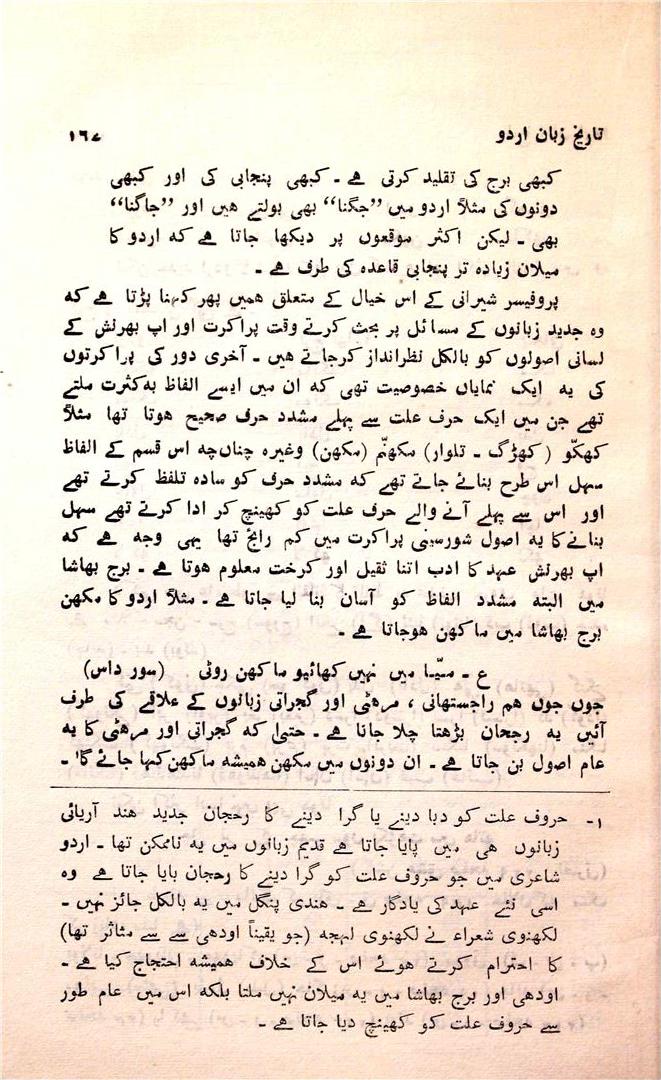 تاریخ زبان اردو ۱۶۷
کبھی برج کی تقلید کرتی ہے ۔ کبھی پنجابی کی اور کبھی
دونوں کی مثلاً اردو میں ’’جگنا‘‘ بھی بولتے ہیں اور ’’جاگنا‘‘
بھی ۔ لیکن اکثر موقعوں پر دیکھا جاتا ہے کہ اردو کا
میلان زیادہ تر پنجابی قاعدہ کی طرف ہے ۔
پروفیسر شیرانی کے اس خیال کے متعلق ہمیں پھر کہنا پڑتا ہے کہ
وہ جدید زبانوں کے مسائل پر بحث کرتے وقت پراکرت اور اپ بھرنش کے
لسانی اصولوں کو بالکل نظرانداز کرجاتے ہیں ۔ آخری دور کی پراکرتوں
کی یہ ایک نمایاں خصوصیت تھی کہ ان میں ایسے الفاظ بہ کثرت ملتے
تھے جن میں ایک حرف علت سے پہلے مشدد حرف صحیح ہوتا تھا مثلاً
کھکّو ( کھڑگ ۔ تلوار) مکھنّم (مکھن) وغیرہ چناں چہ اس قسم کے الفاظ
سہل اس طرح بنائے جاتے تھے کہ مشدد حرف کو سادہ تلفظ کرتے تھے
اور اس سے پہلے آنے والے حرف علت کو کھینچ کر ادا کرتے تھے سہل
بنانے کا یہ اصول شورسینی پراکرت میں کم رائج تھا یہی وجہ ہے کہ
اپ بھرنش عہد کا ادب اتنا ثقیل اور کرخت معلوم ہوتا ہے ۔ برج بھاشا
میں البتہ مشدد الفاظ کو آسان بنا لیا جاتا ہے ۔ مثلاً اردو کا مکھن
برج بھاشا میں ماکھن ہوجاتا ہے ۔
ع ۔ میّا میں نہیں کھائیو ماکھن روٹی (سور داس)
جوں جوں ہم راجستھانی ، مرہٹی اور گجراتی زبانوں کے علاقے کی طرف
آئیں یہ رجحان بڑھتا چلا جاتا ہے ۔ حتیٰ کہ گجراتی اور مرہٹی کا یہ
عام اصول بن جاتا ہے ۔ ان دونوں میں مکھن ہمیشہ ماکھن کہا جائے گا¹ ۔
۱- حروف علت کو دبا دینے یا گرا دینے کا رحجان جدید ہند آریائی
زبانوں ہی میں پایا جاتا ہے قدیم زبانوں میں یہ ناممکن تھا ۔ اردو
شاعری میں جو حروف علت کو گرا دینے کا رحجان پایا جاتا ہے وہ
اسی نئے عہد کی یادگار ہے ۔ ہندی پنگل میں یہ بالکل جائز نہیں ۔
لکھنوی شعراء نے لکھنوی لہجہ (جو یقیناً اودھی سے سے متاثر تھا)
کا احترام کرتے ہوئے اس کے خلاف ہمیشہ احتجاج کیا ہے ۔
اودھی اور برج بھاشا میں یہ میلان نہیں ملتا بلکہ اس میں عام طور
سے حروف علت کو کھینچ دیا جاتا ہے ۔